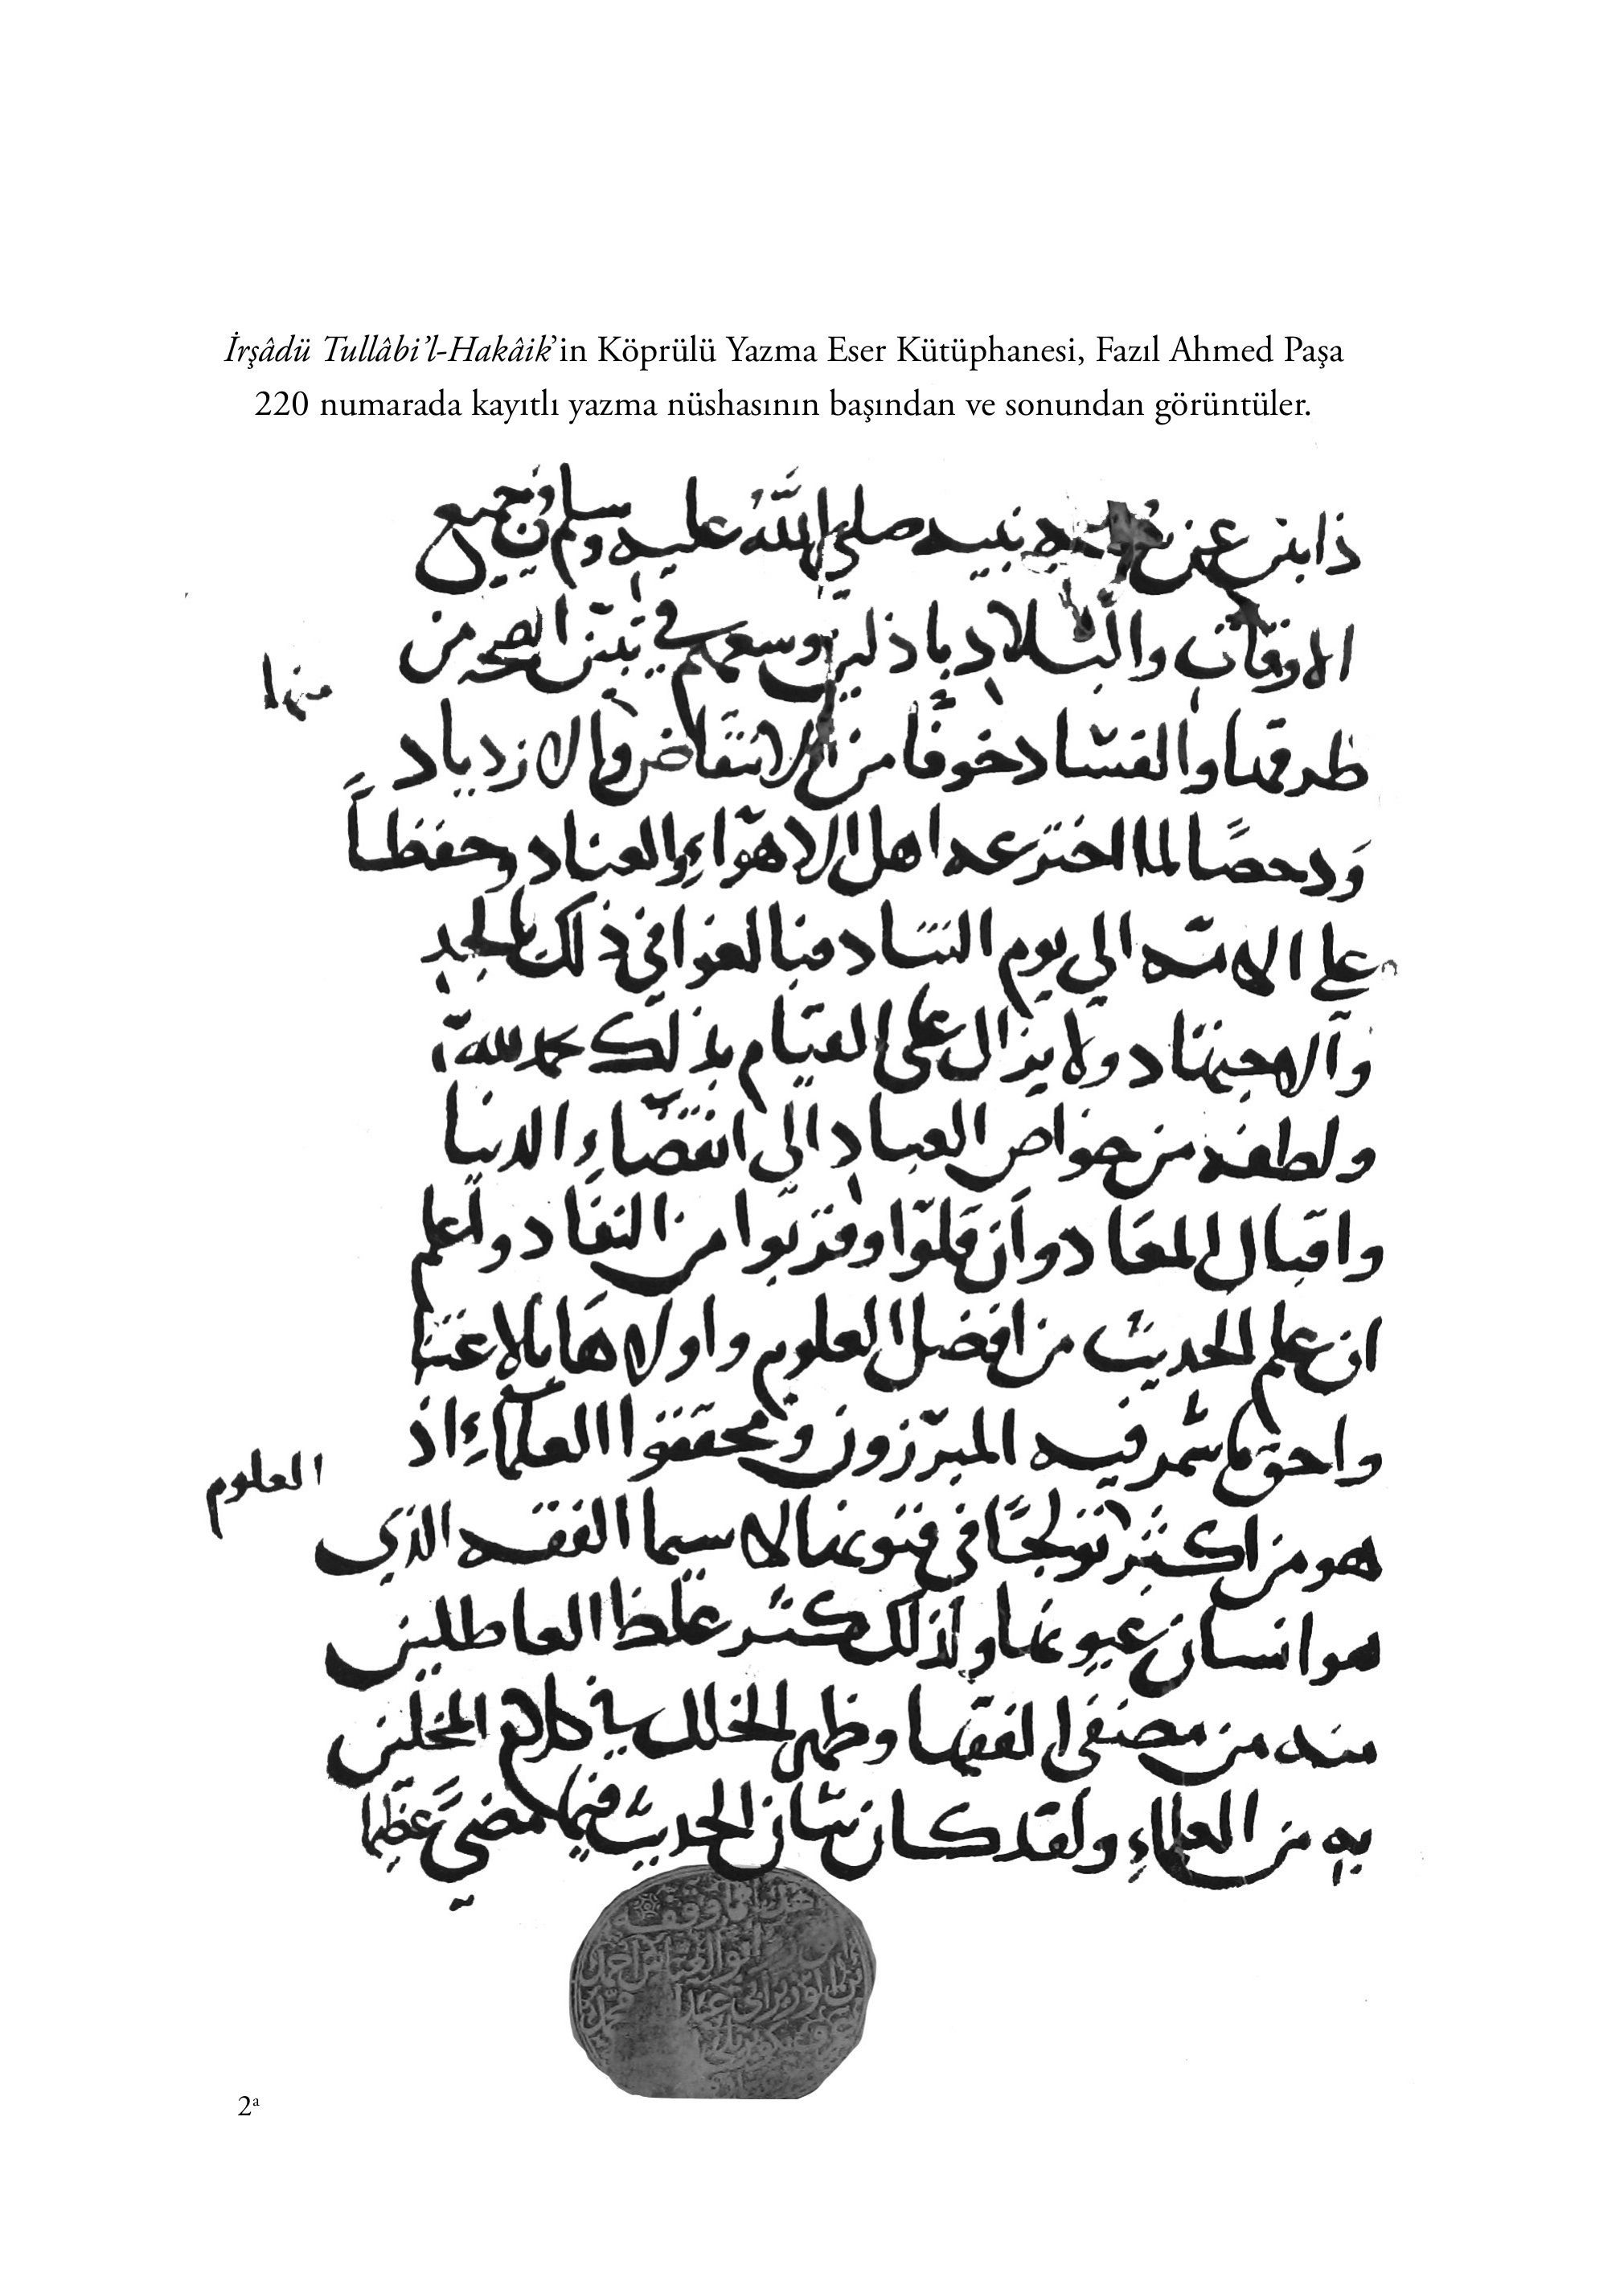 İrşâdü Tullâbi’l-Hakâik’in Köprülü Yazma Eser Kütüphanesi, Fazıl Ahmed Paşa
220 numarada kayıtlı yazma nüshasının başından ve sonundan görüntüler.
ذابين عن نبيه صلى الله عليه وسلم في جميع
الاوقات والبلاد باذلين وسعهم في تبيين الصحة من
منها
طرقها والفساد خوفًا من الانتقاض والازدياد
وَدحصًا لما اخترعه اهل الاهوّاءِ والعناد وحفظاً
علي الامّه الي يوم التناد فبالغوا في ذلك بالجد
والاجتهاد ولا يزال على القيام بذلك بحمد الله
ولطفه من خواص العباد الى انقضاءِ الدنيا
واقبال المعاد وان قلوّا وقربوا من النفاد واعلم
ان علم الحديث من افضل العلوم واولاها بالاعتنا
واحق ما شمر فيه المبرّزون ومحققوا العلماءِ اذ
العلوم
هو من اكثر تولجًا في فنونها لا سيما الفقه الذي
هو انسان عيونها ولذلك كثر غلط العاطلين
منه من مصنفي الفقها وظهر الخلل في كلام المخلين
به من العلماءِ ولقد كان شان الحديث فيما مضيَ عظيما
ابو العباس احمد
بن الوزير ابي عبد الله محمد
2a